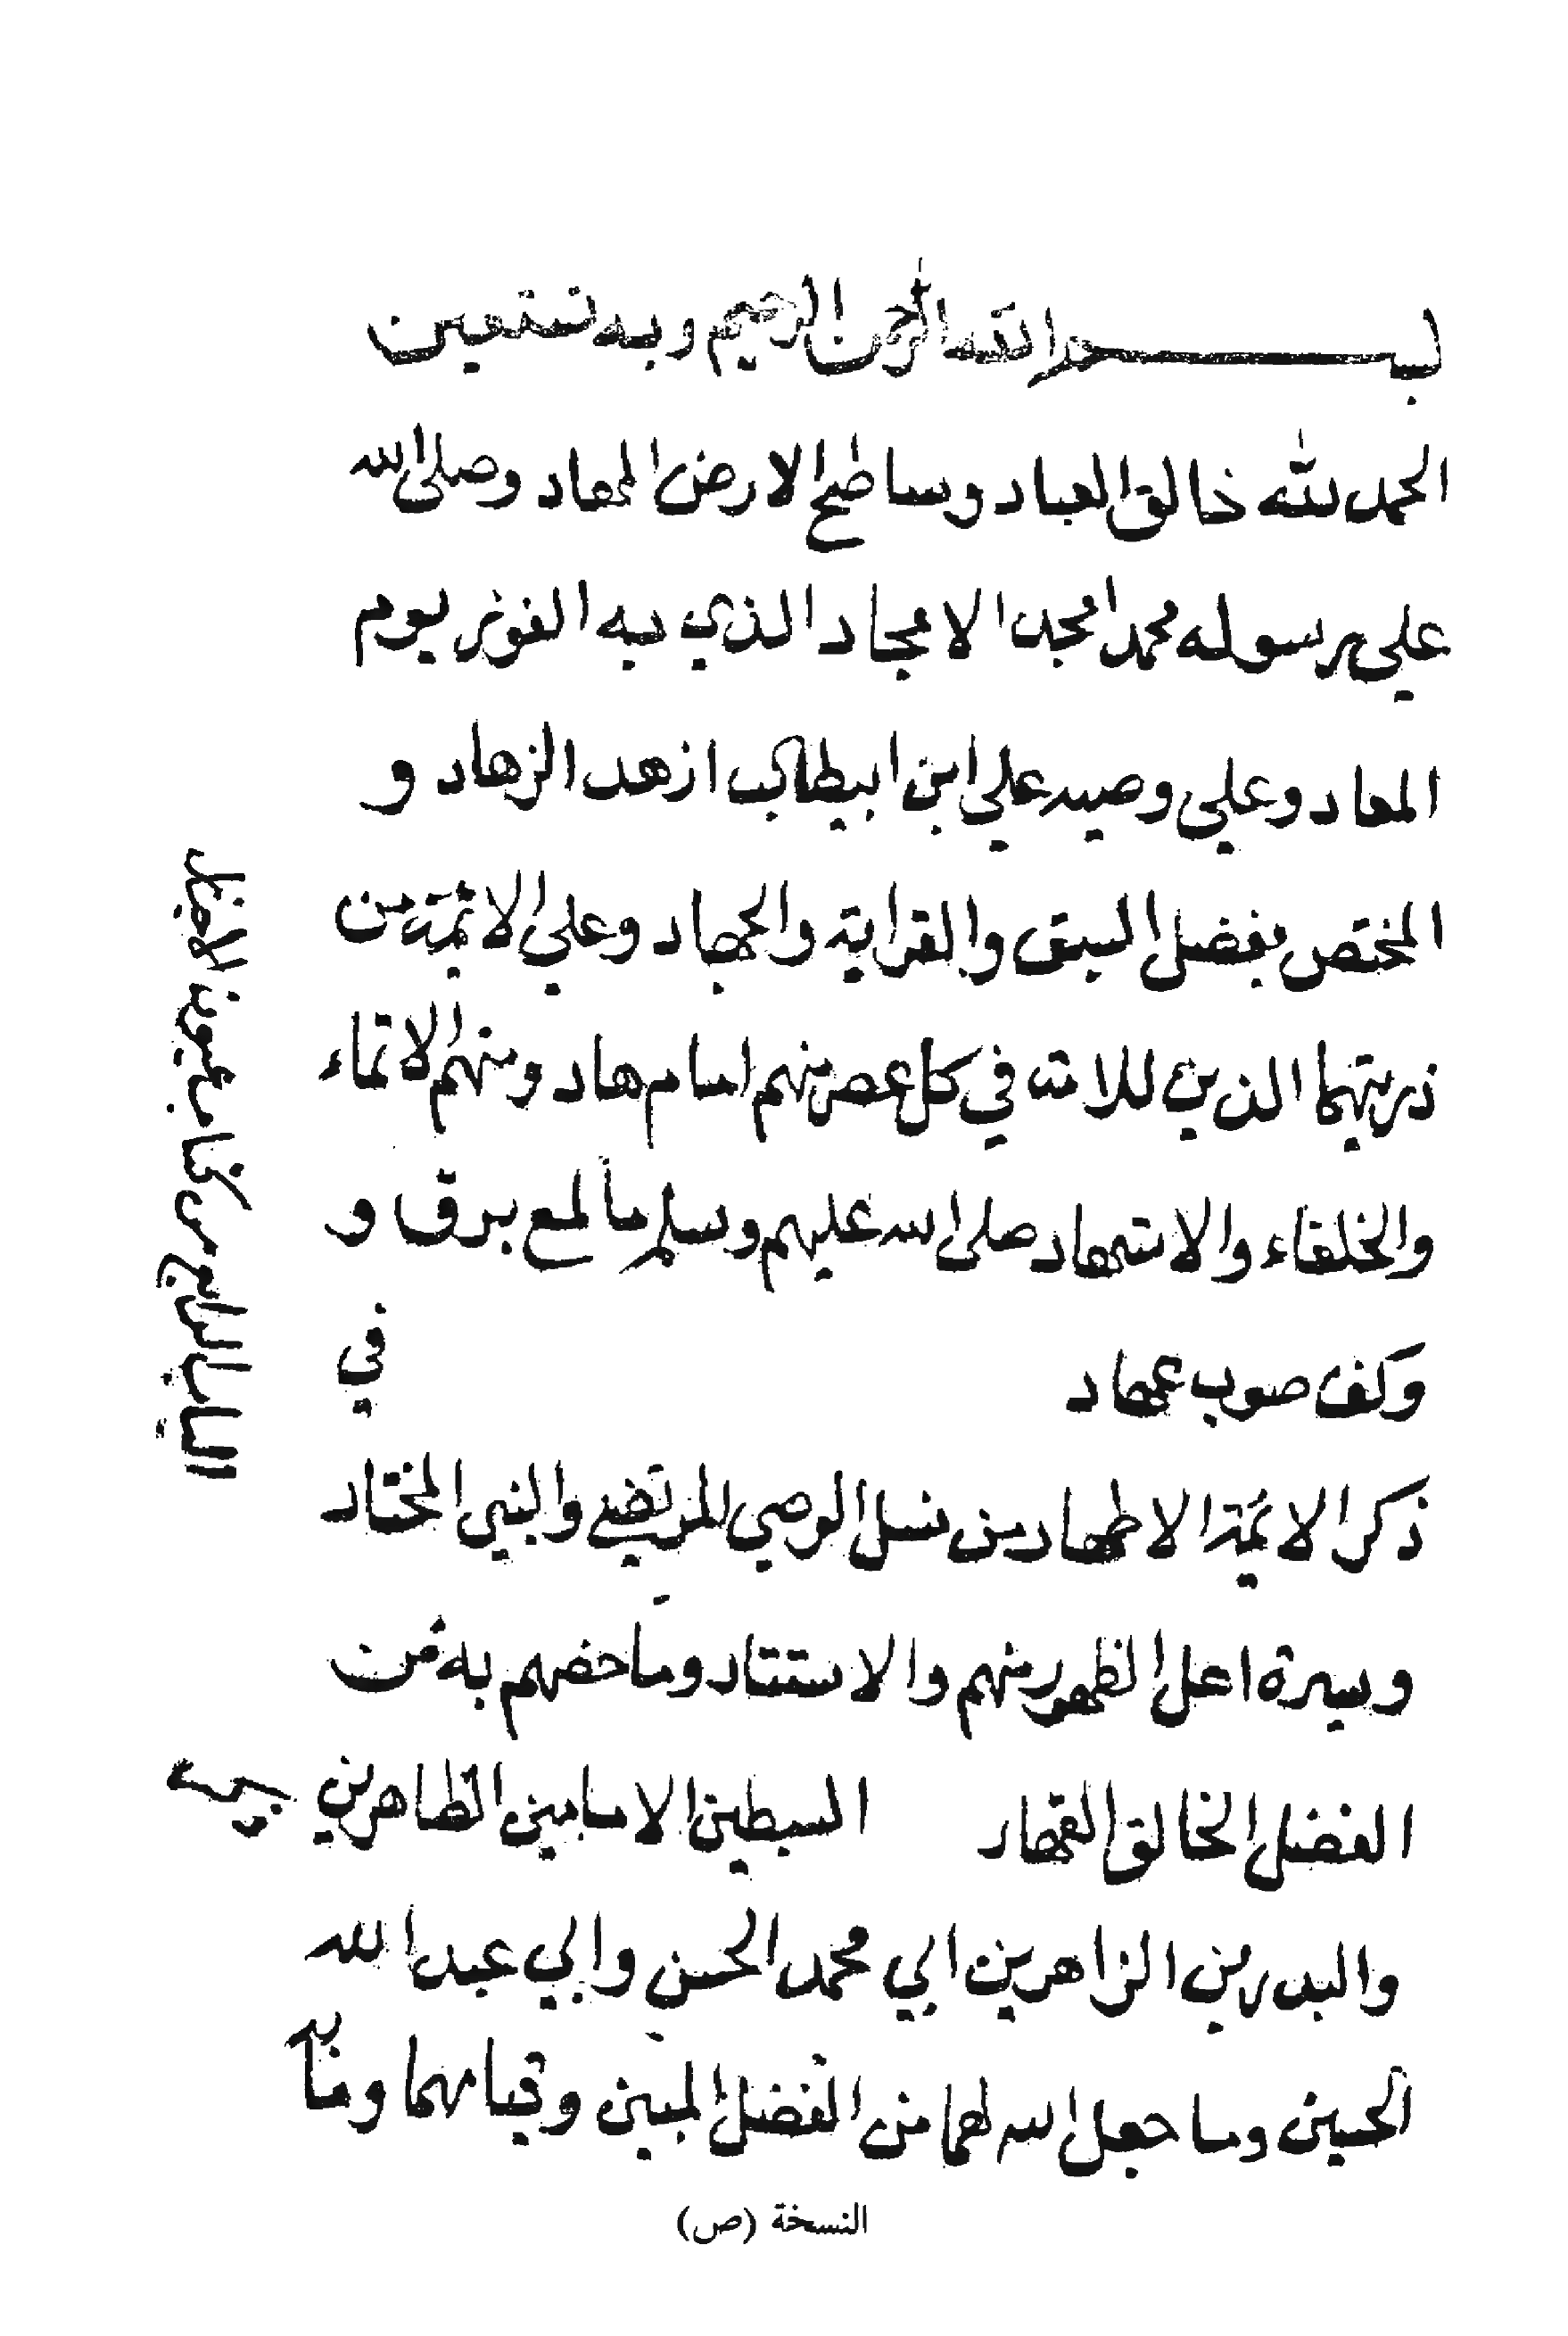 بسم الله الرحمن الرحيم وبه نستعين
الحمد لله خالق العباد وساطح الارض المهاد وصلى الله
علي رسوله محمد امجد الامجاد الذي به الفوز يوم
المعاد وعلي وصيه علي ابن ابيطالب ازهد الزهاد و
المختص بفضل السبق والقرابة والجهاد وعلي الائمة من
ذريتهما الذين للامة في كل عصر منهم امام هاد ومنهم الاتماء
والخلفاء والاشهاد صلى الله عليهم وسلم ما لمع برق و
وكف صوب عهاد
في
ذكر الائمة الاطهار من نسل الوصي المرتضي والنبي المختار
وسيرة اهل الظهور منهم والاستتار وما خصهم به من
الفضل الخالق القهار السبطين الامامين الطاهرين
والبدرين الزاهرين ابي محمد الحسن وابي عبد الله
الحسين وما جعل الله لهما من الفضل المبين وقيامهما
الباب الرابع من كتاب عيون الاخبار
النسخة (ص)